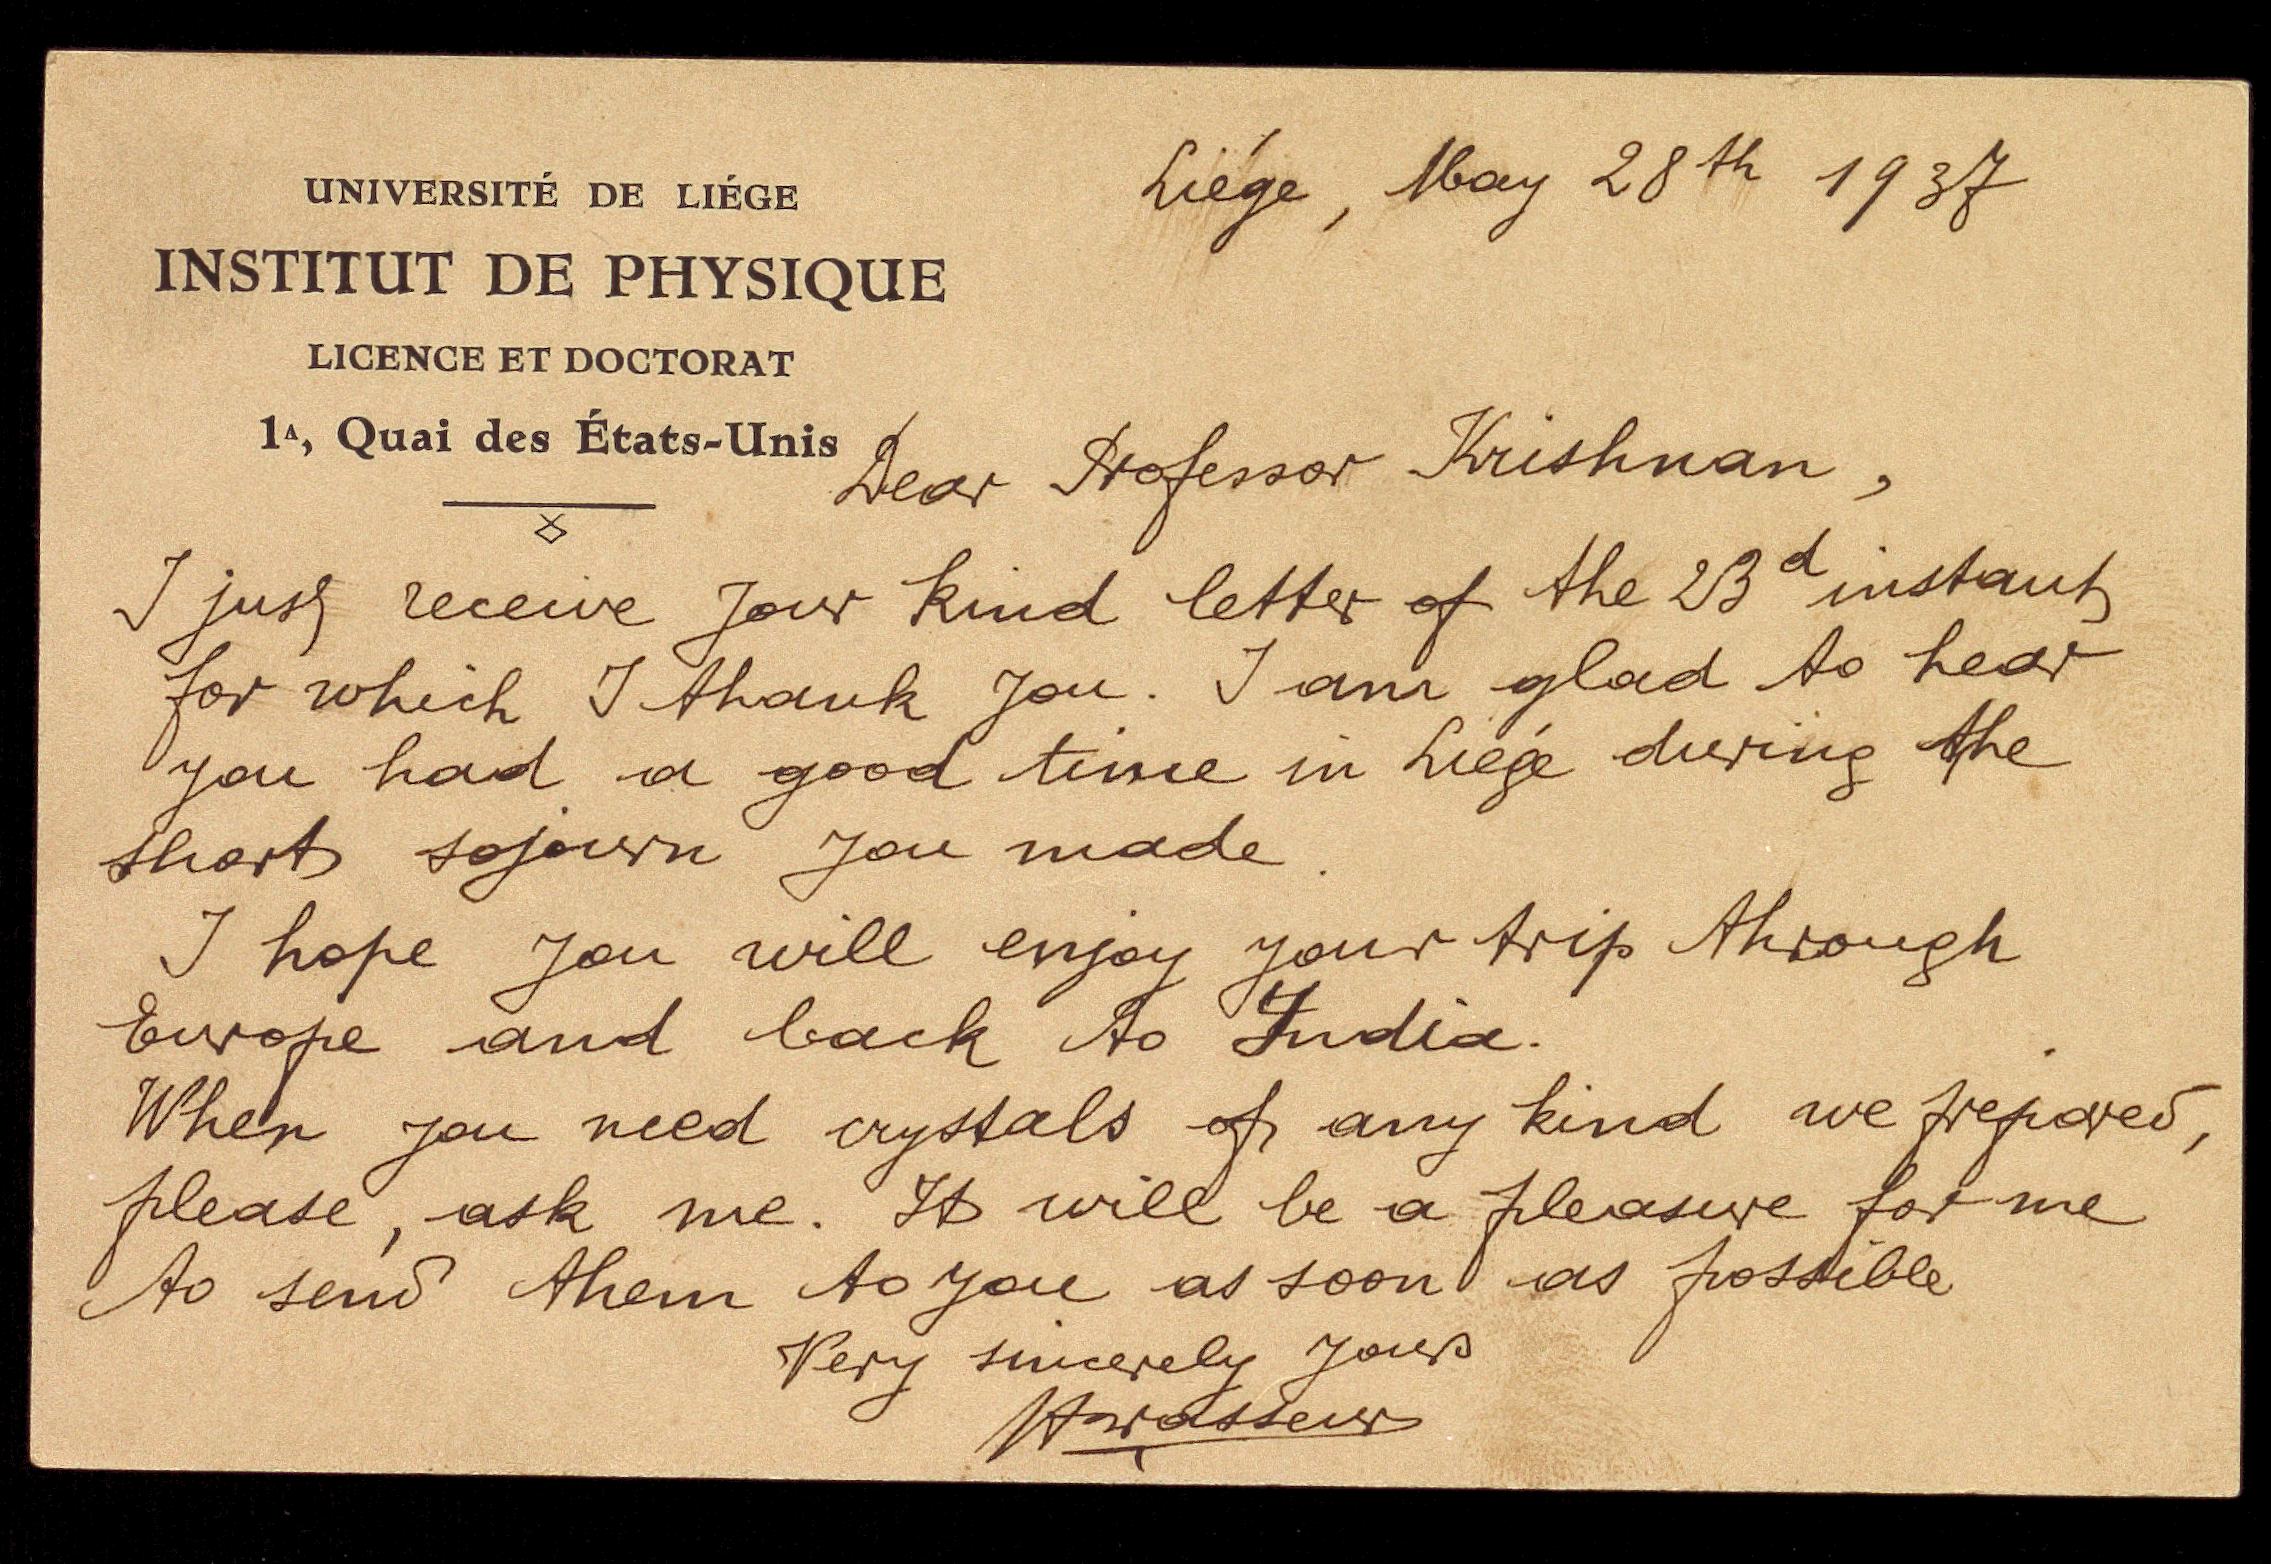 UNIVERSITÉ DE LIÉGE
INSTITUT DE PHYSIQUE
LICENCE ET DOCTORAT
1A, Quai des États-Unis
Liége, May 28th 1937
Dear Professor Krishnan,
I just receive your kind letter of the 23d instant
for which I thank you. I am glad to hear
you had a good time in Liége during the
short sojourn you made.
I hope you will enjoy your trip through
Europe and back to India.
When you need crystals of any kind we prepared,
please, ask me. It will be a pleasure for me
to send them to you as soon as possible
Very sincerely yours